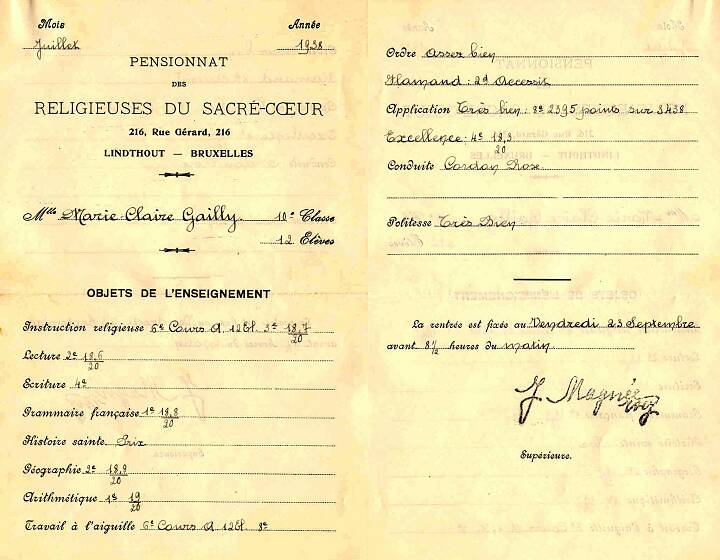 Mois
Année
Juillet
1938
PENSIONNAT
DES
RELIGIEUSES DU SACRÉ-CŒUR
216, Rue Gérard, 216
LINDTHOUT — BRUXELLES
Mlle Marie-Claire Gailly. 10e Classe
12 Elèves
OBJETS DE L'ENSEIGNEMENT
Instruction religieuse 6e Cours A. 12El. 3e 18,7/20
Lecture 2e 18,6/20
Ecriture 4e
Grammaire française 1e 18,8/20
Histoire sainte Prix
Géographie 2e 18,9/20
Arithmétique 1e 19/20
Travail à l'aiguille 6e Cours A 12El. 8e
Ordre Assez bien
Flamand : 2d Accessit
Application Très bien : 8e 2395 points sur 3438
Excellence : 4e 18,3/20
Conduite Cordon Rose.
Politesse Très Bien
La rentrée est fixée au Vendredi 23 Septembre
avant 8 1/2 heures du matin
J. Magnée
Supérieure.